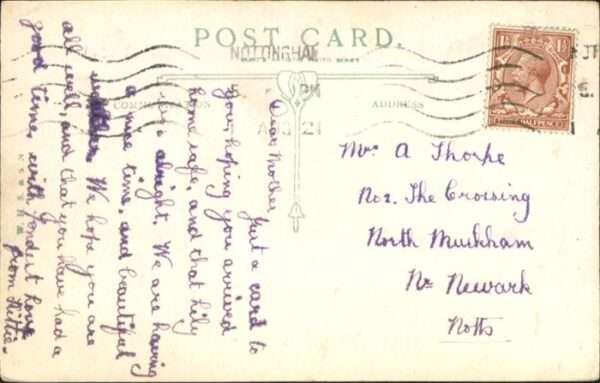 POST CARD.
NOTTINGHAM
PM
21
COMMUNICATION
ADDRESS
Dear Mother Just a card to
you hoping you arrived
home safe, and that Lily
is alright. We are having
a nice time, and beautiful
weather. We hope you are
all well, and that you have had a
good time, with fondest love
from Hettie.
Mrs A Thorpe
No 2. The Crossing
North Muskham
Nr Newark
Notts